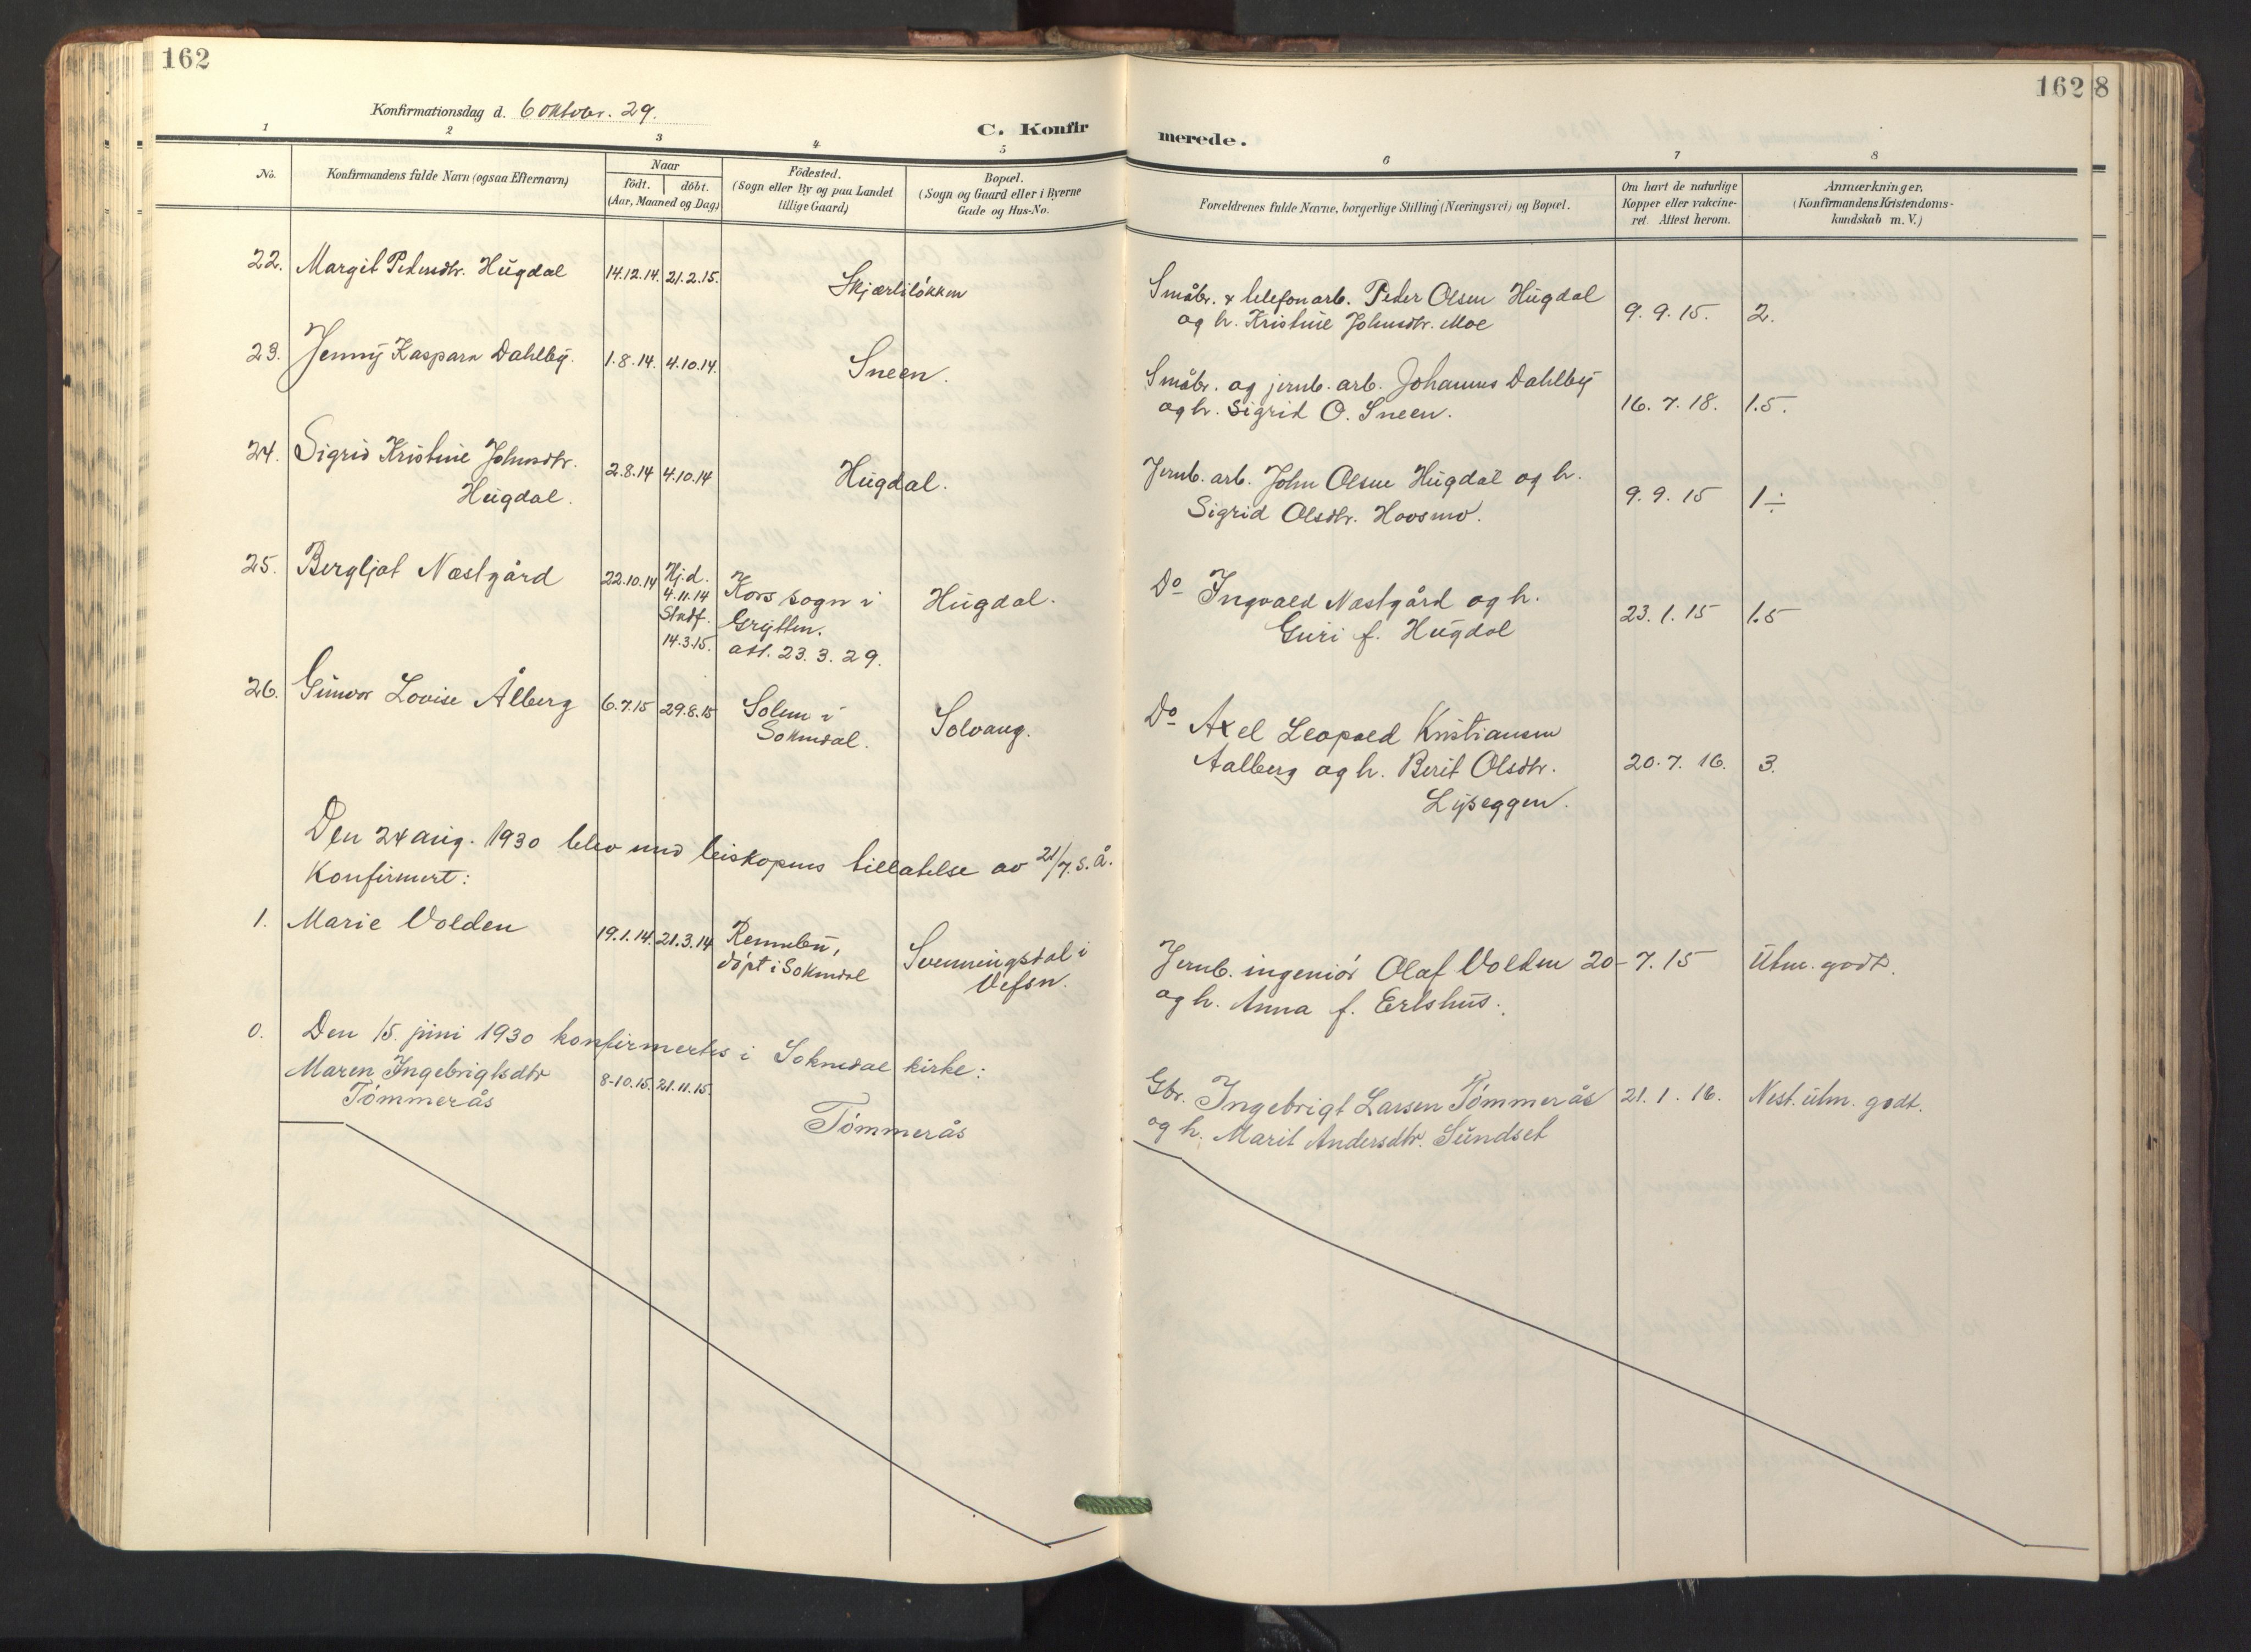 162
162
8
Konfirmationsdag d. 6 oktober. 29.
C. Konfirmerede.
1 2 3 4 5 6 7 8
No.
Konfirmandens fulde Navn (ogsaa Efternavn)
Naar
födt. döbt.
(Aar, Maaned og Dag)
Födested.
(Sogn eller By og paa Landet
tillige Gaard)
Bopæl.
(Sogn og Gaard eller i Byerne
Gade og Hus-No.
Forældrenes fulde Navne, borgerlige Stilling (Næringsvei) og Bopæl.
Om havt de naturlige
Kopper eller vakcine-
ret. Attest herom.
Anmærkninger.
(Konfirmandens Kristendoms-
kundskab m. V.)
22. Margit Pedersdtr. Hugdal 14.12.14. 21.2.15. Skjærliløkken
Småbr. & telefonarb. Peder Olsen Hugdal
og h. Kristine Johnsdtr. Moe 9.9.15. 2.
23. Jenny Kaspara Dahlby. 1.8.14. 4.10.14. Sneen.
Småbr. og jernb. arb. Johannes Dahlby
og h. Sigrid O. Sneen. 16.7.18. 1.5.
24. Sigrid Kristine Johnsdtr.
Hugdal. 2.8.14 4.10.14 Hugdal.
Jernb. arb. John Olsen Hugdal og h.
Sigrid Olsdtr. Hovsmo. 9.9.15 1÷
25. Bergljot Næstgård 22.10.14 Hj.d.
4.11.14
Stadf.
14.3.15.
Kors sogn i
Grytten.
att. 23.3.29.
Hugdal.
Do Ingvald Næstgård og h.
Guri f. Hugdal 23.1.15 1.5
26. Gunvor Lovise Ålberg 6.7.15 29.8.15 Solem i
Soknedal.
Solvang.
Do Axel Leopold Kristiansen
Aalberg og h. Berit Olsdtr.
Lyseggen. 20.7.16. 3.
Den 24 aug. 1930 blev med biskopens tillatelse av 21/7. s. å.
Konfirmert:
1. Marie Volden 19.1.14. 21.3.14 Rennebu,
døpt i Soknedal
Svenningsdal i
Vefsn.
Jernb. ingeniør Olaf Volden 20-7.15 Utm. godt.
og h. Anna f. Ertshus.
0. Den 15. juni 1930 konfirmertes i Soknedal kirke:
Maren Ingebrigtsdtr
Tømmerås 8-10.15. 21.11.15. Tømmerås
Gbr. Ingebrigt Larsen Tømmerås 21.1.16. Nest. utm. godt.
og h. Marit Andersdtr. Sundset